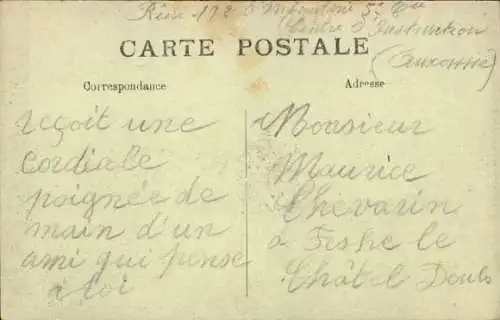 172 d'Infanterie 5e Cie
Centre d'Instruction
CARTE POSTALE
(Auxonne)
Correspondance
Adresse
reçoit une
cordiale
poignée de
main d'un
ami qui pense
à toi
Monsieur
Maurice
Chevarin
à Feshe le
Châtel Doubs